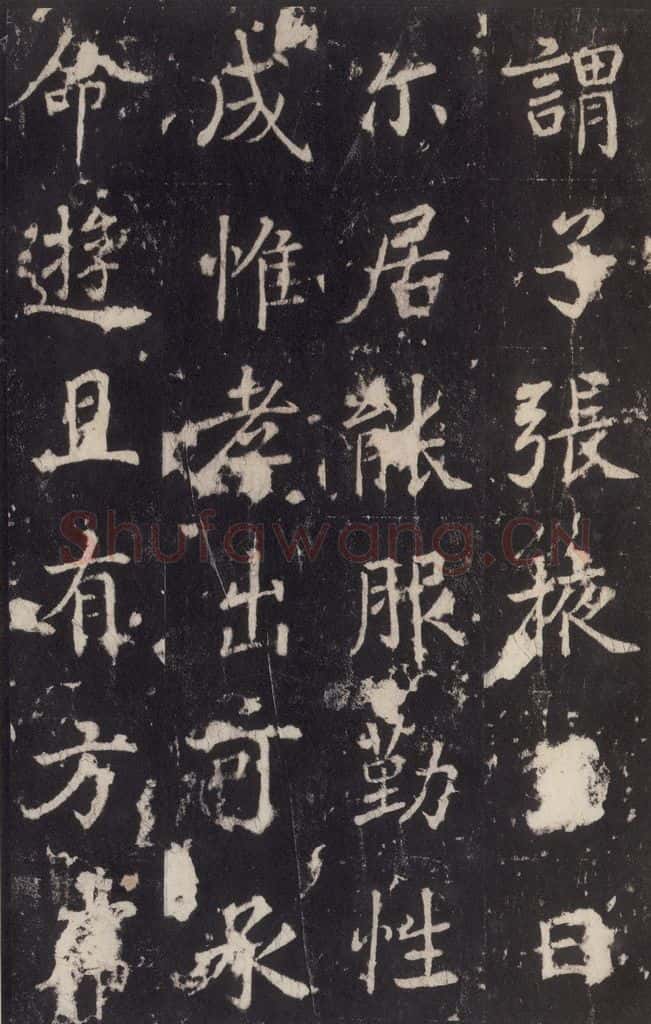 謂子張掖曰
尔居能服勤性
成惟孝出可承
命遊且有方常
Shufawang.CN